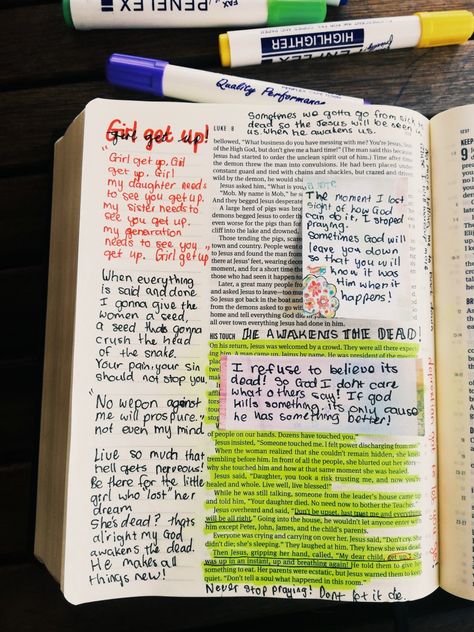 PENFLEX
HIGHLIGHTER
PENFLEX
Quality Performance
Girl get up!
"Girl get up. Girl
get up. Girl
my daughter needs
to see you get up.
My sister needs to
see you get up.
my generation
needs to see you
get up. Girl get up
When everything
is said and done
I gonna give the
women a seed,
a seed thats gonna
crush the head
of the snake.
Your pain, your sin
should not stop you.
"No wepon against
me will prospure!
not even my mind.
Live so much that
hell gets nerveous!
Be there for the little
girl who lost her
dream
She's dead? thats
allright my God
awakens the dead.
He makes all
things new!
Sometimes we gotta go from sick to
dead so the Jesus will be seen in
us. When he awakens us.
LUKE 8
bellowed, "What business do you have messing with me? You're Jesus, Son
of the High God, but don't give me a hard time!" (The man said this because
Jesus had started to order the unclean spirit out of him.) Time after time
the demon threw the man into convulsions. He had been placed under
constant guard and tied with chains and shackles, but crazed and driven
wild by the demon, he would
Jesus asked him, "What is you
"Mob. My name is Mob," he
And they begged Jesus desperat
A large herd of pigs was brows
demons begged Jesus to order
even worse for the pigs than for
cliff into the lake and drowned.
Those tending the pigs, scared
town and country. People went o
and found the man from
there at Jesus' feet, wearing decent
moment, and for a short time
those who had seen it happen
Later, a great many people fro
asked Jesus to leave—too
So Jesus got back in the boat and
from the demons asked to go wit
home and tell everything God did
all over town everything Jesus had done in him.
The moment I lost
sight of how God
can do it, I stoped
praying.
Sometimes God will
leave you down
so that you will
know it was
Him when it
happens!
HIS TOUCH
HE AWAKENS THE DEAD!
On his return, Jesus was welcomed by a crowd. They were all there expect-
ing him. A man came up, Jairus by name. He was president of the meeting
I refuse to believe its
dead! So God I dont care
what others say! If god
kills something, its only cause
he has something better!
of people on his hands. Dozens have touched you."
Jesus insisted, "Someone touched me. I felt power discharging from me."
When the woman realized that she couldn't remain hidden, she knelt
trembling before him. In front of all the people, she blurted out her story—
why she touched him and how at that same moment she was healed.
Jesus said, "Daughter, you took a risk trusting me, and now you're
healed and whole. Live well, live blessed!"
While he was still talking, someone from the leader's house came up
and told him, "Your daughter died. No need now to bother the Teacher."
Jesus overheard and said, "Don't be upset. Just trust me and everything
will be all right." Going into the house, he wouldn't let anyone enter with
him except Peter, John, James, and the child's parents.
Everyone was crying and carrying on over her. Jesus said, "Don't cry. She
didn't die; she's sleeping." They laughed at him. They knew she was dead.
Then Jesus, gripping her hand, called, "My dear child, get up." She
was up in an instant, up and breathing again! He told them to give her
something to eat. Her parents were ecstatic, but Jesus warned them to keep
quiet. "Don't tell a soul what happened in this room."
Never stop praying! Dont let it die.